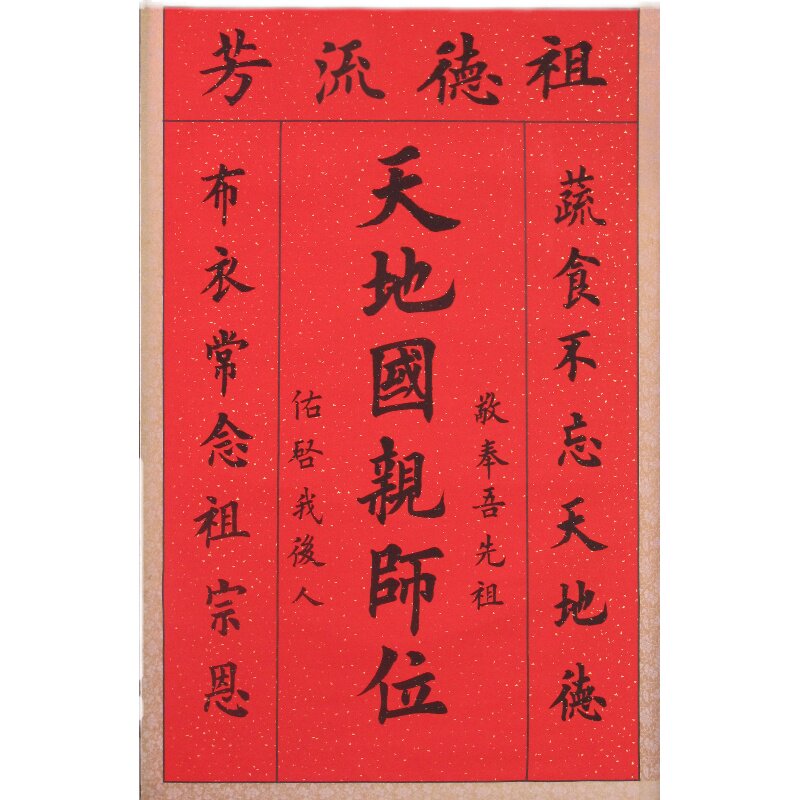 祖德流芳
蔬食不忘天地德
敬奉吾先祖
天地國親師位
佑啓我後人
布衣常念祖宗恩